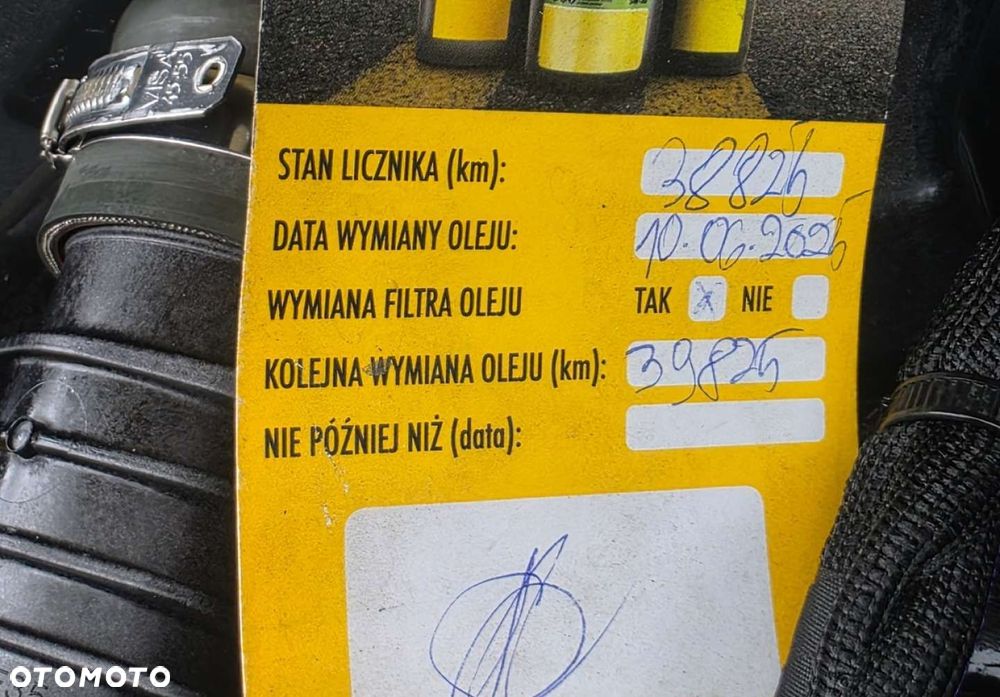 VISA
35-55
STAN LICZNIKA (km): 38825
DATA WYMIANY OLEJU: 10.06.2025
WYMIANA FILTRA OLEJU TAK x NIE
KOLEJNA WYMIANA OLEJU (km): 39825
NIE PÓŹNIEJ NIŻ (data):
OTOMOTO